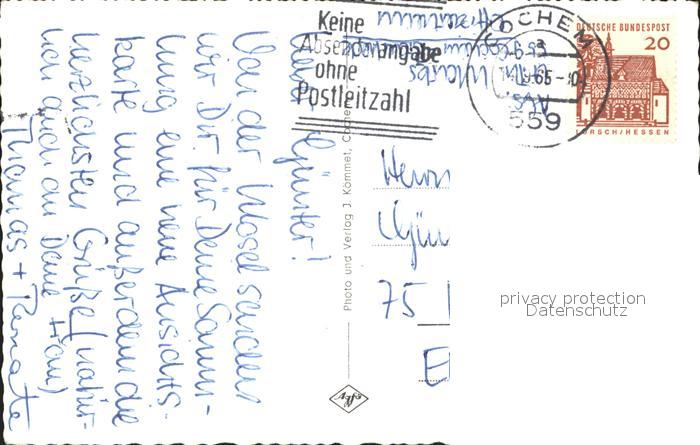 Keine
Absenderangabe
ohne
Postleitzahl
COCHEM
65-10
559
DEUTSCHE BUNDESPOST
20
LORSCH/HESSEN
Günter!
Von der Mosel senden
wir Dir für Deine Samm-
lung eine neue Ansichts-
karte und außerdem die
herzlichsten Grüße (natür-
lich auch an Deine Frau)
Thomas + Renate
Photo und Verlag J. Kömmet, Cochem
Herrn
Gün
75
E
privacy protection
Datenschutz